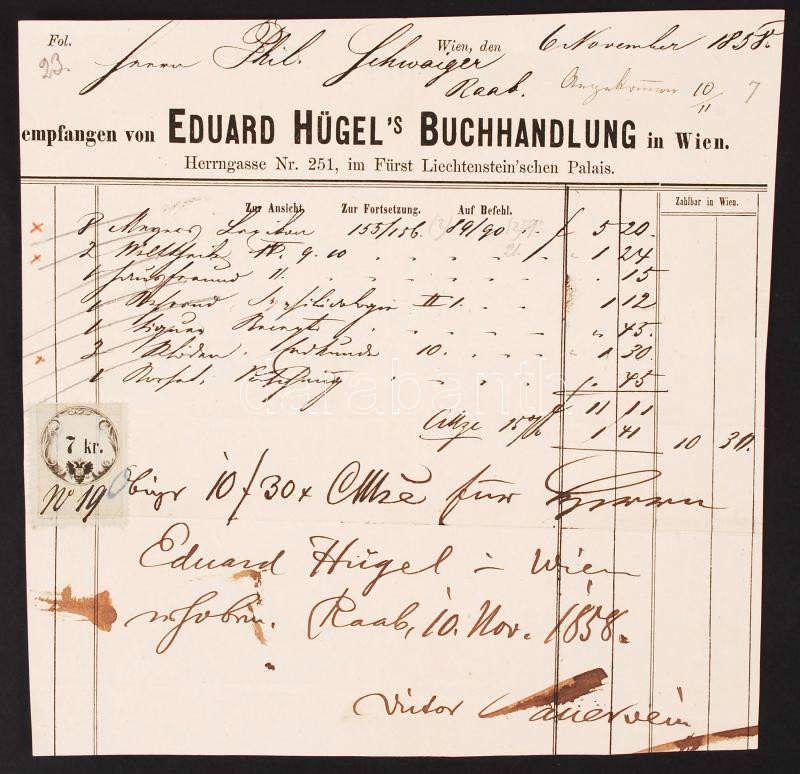 Fol. Wien, den 6 November 1858.
23. Herrn Phil. Schwaiger
Raab. Angekommen 10/11 7
empfangen von EDUARD HÜGEL'S BUCHHANDLUNG in Wien.
Herrngasse Nr. 251, im Fürst Liechtenstein'schen Palais.
Zur Ansicht. Zur Fortsetzung. Auf Befehl. Zahlbar in Wien.
8 Meyers Lexikon 155/156. 89/90 f 5 20
2 Welttheile IV. 9. 10 1 24
1 Hausfreund 11. 15
1 II 1. 1 12
1 Recepte 45
3 Erdkunde 10. 1 30
1 45
f 11 11
15% 1 41 10 30.
7 kr.
No 19 10 f 30 x für Herrn
Eduard Hügel in Wien
erhoben. Raab, 10. Nov. 1858.
Victor Sauerwein
darabanth